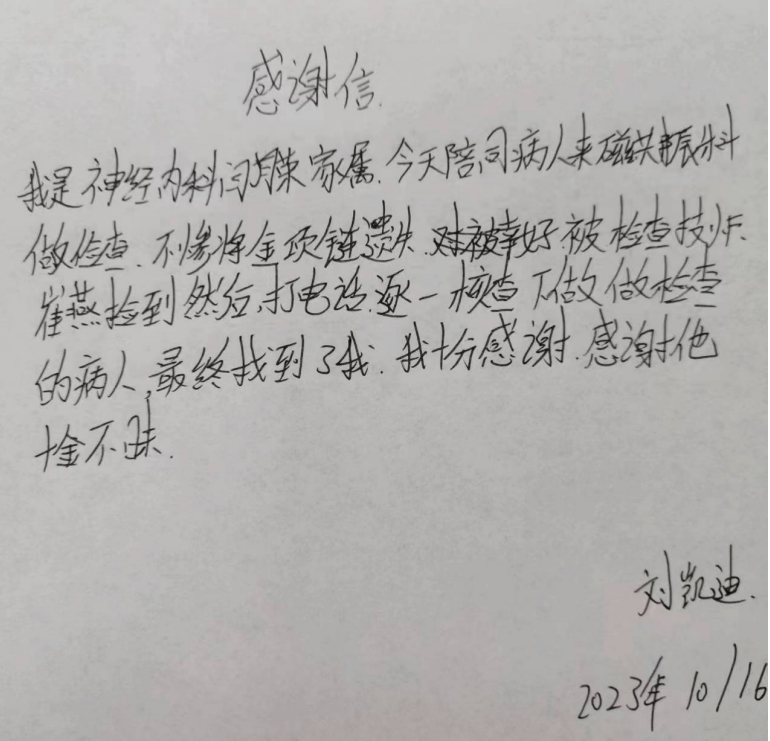 感谢信.
我是神经内科闫荣家属.今天陪同病人来磁共振科
做检查.不慎将金项链遗失.幸好被检查技师.
崔燕捡到然后,打电话逐一核查下做做检查
的病人,最终找到了我.我十分感谢.感谢他
十金不昧.
刘凯迪.
2023年10/16